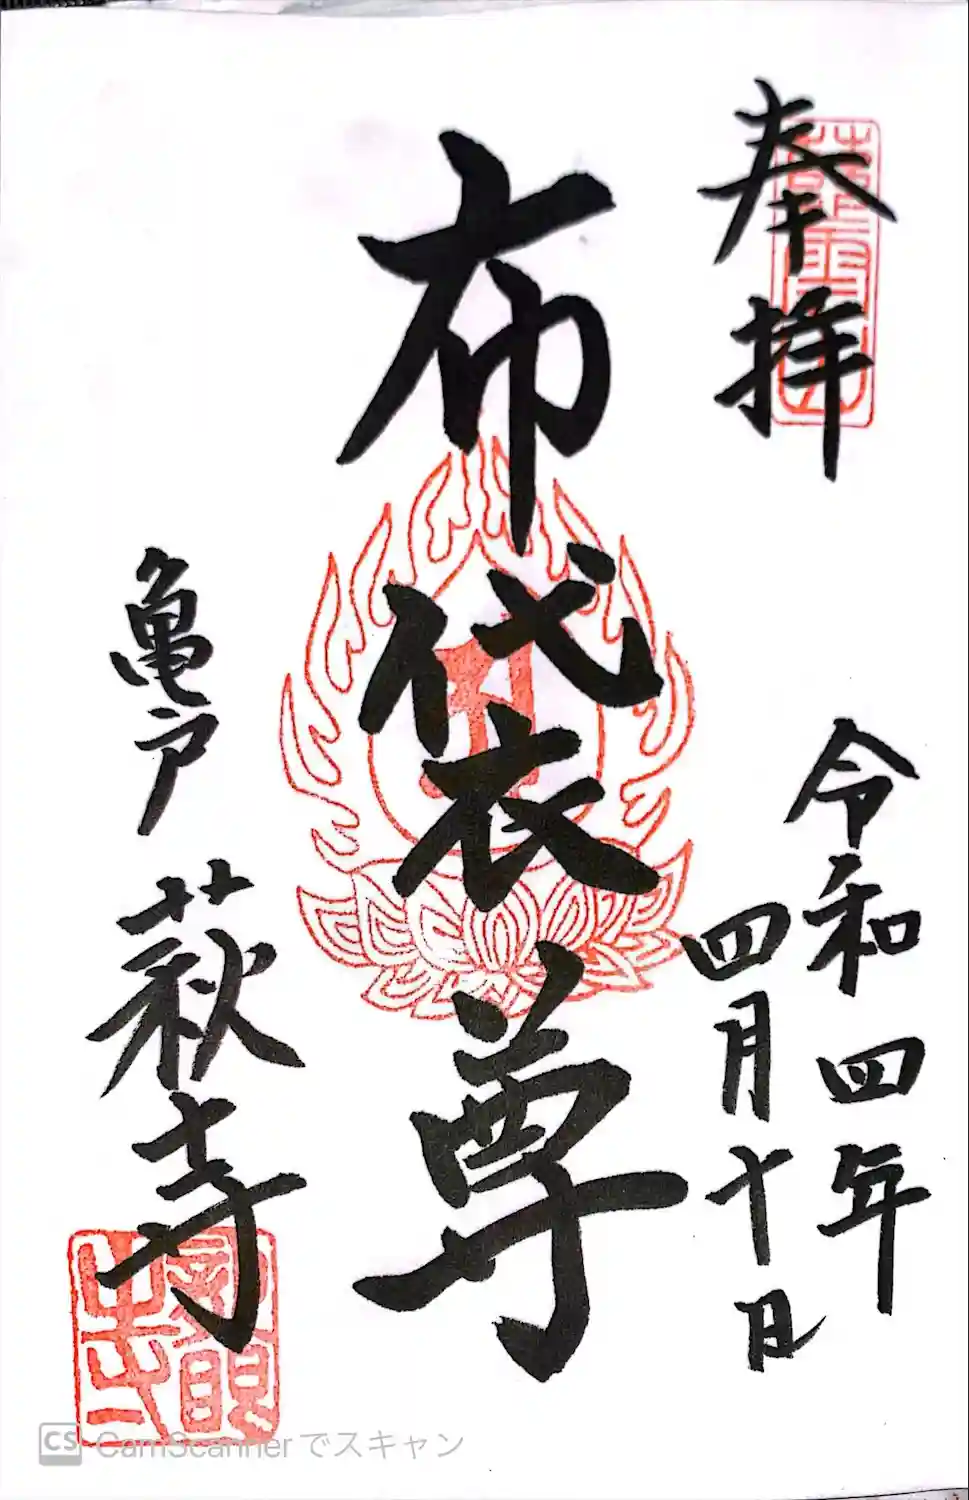 奉拝
令和四年
四月十日
布袋尊
亀戸 萩寺
CS CamScannerでスキャン